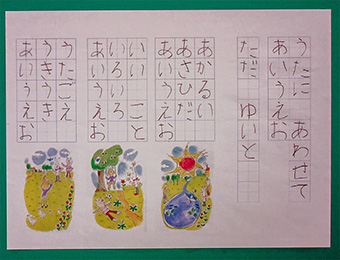 うたに あわせて
あいうえお
ただ ゆいと
あかるい
あさひだ
あいうえお
いい こと
いろいろ
あいうえお
うたごえ
うきうき
あいうえお